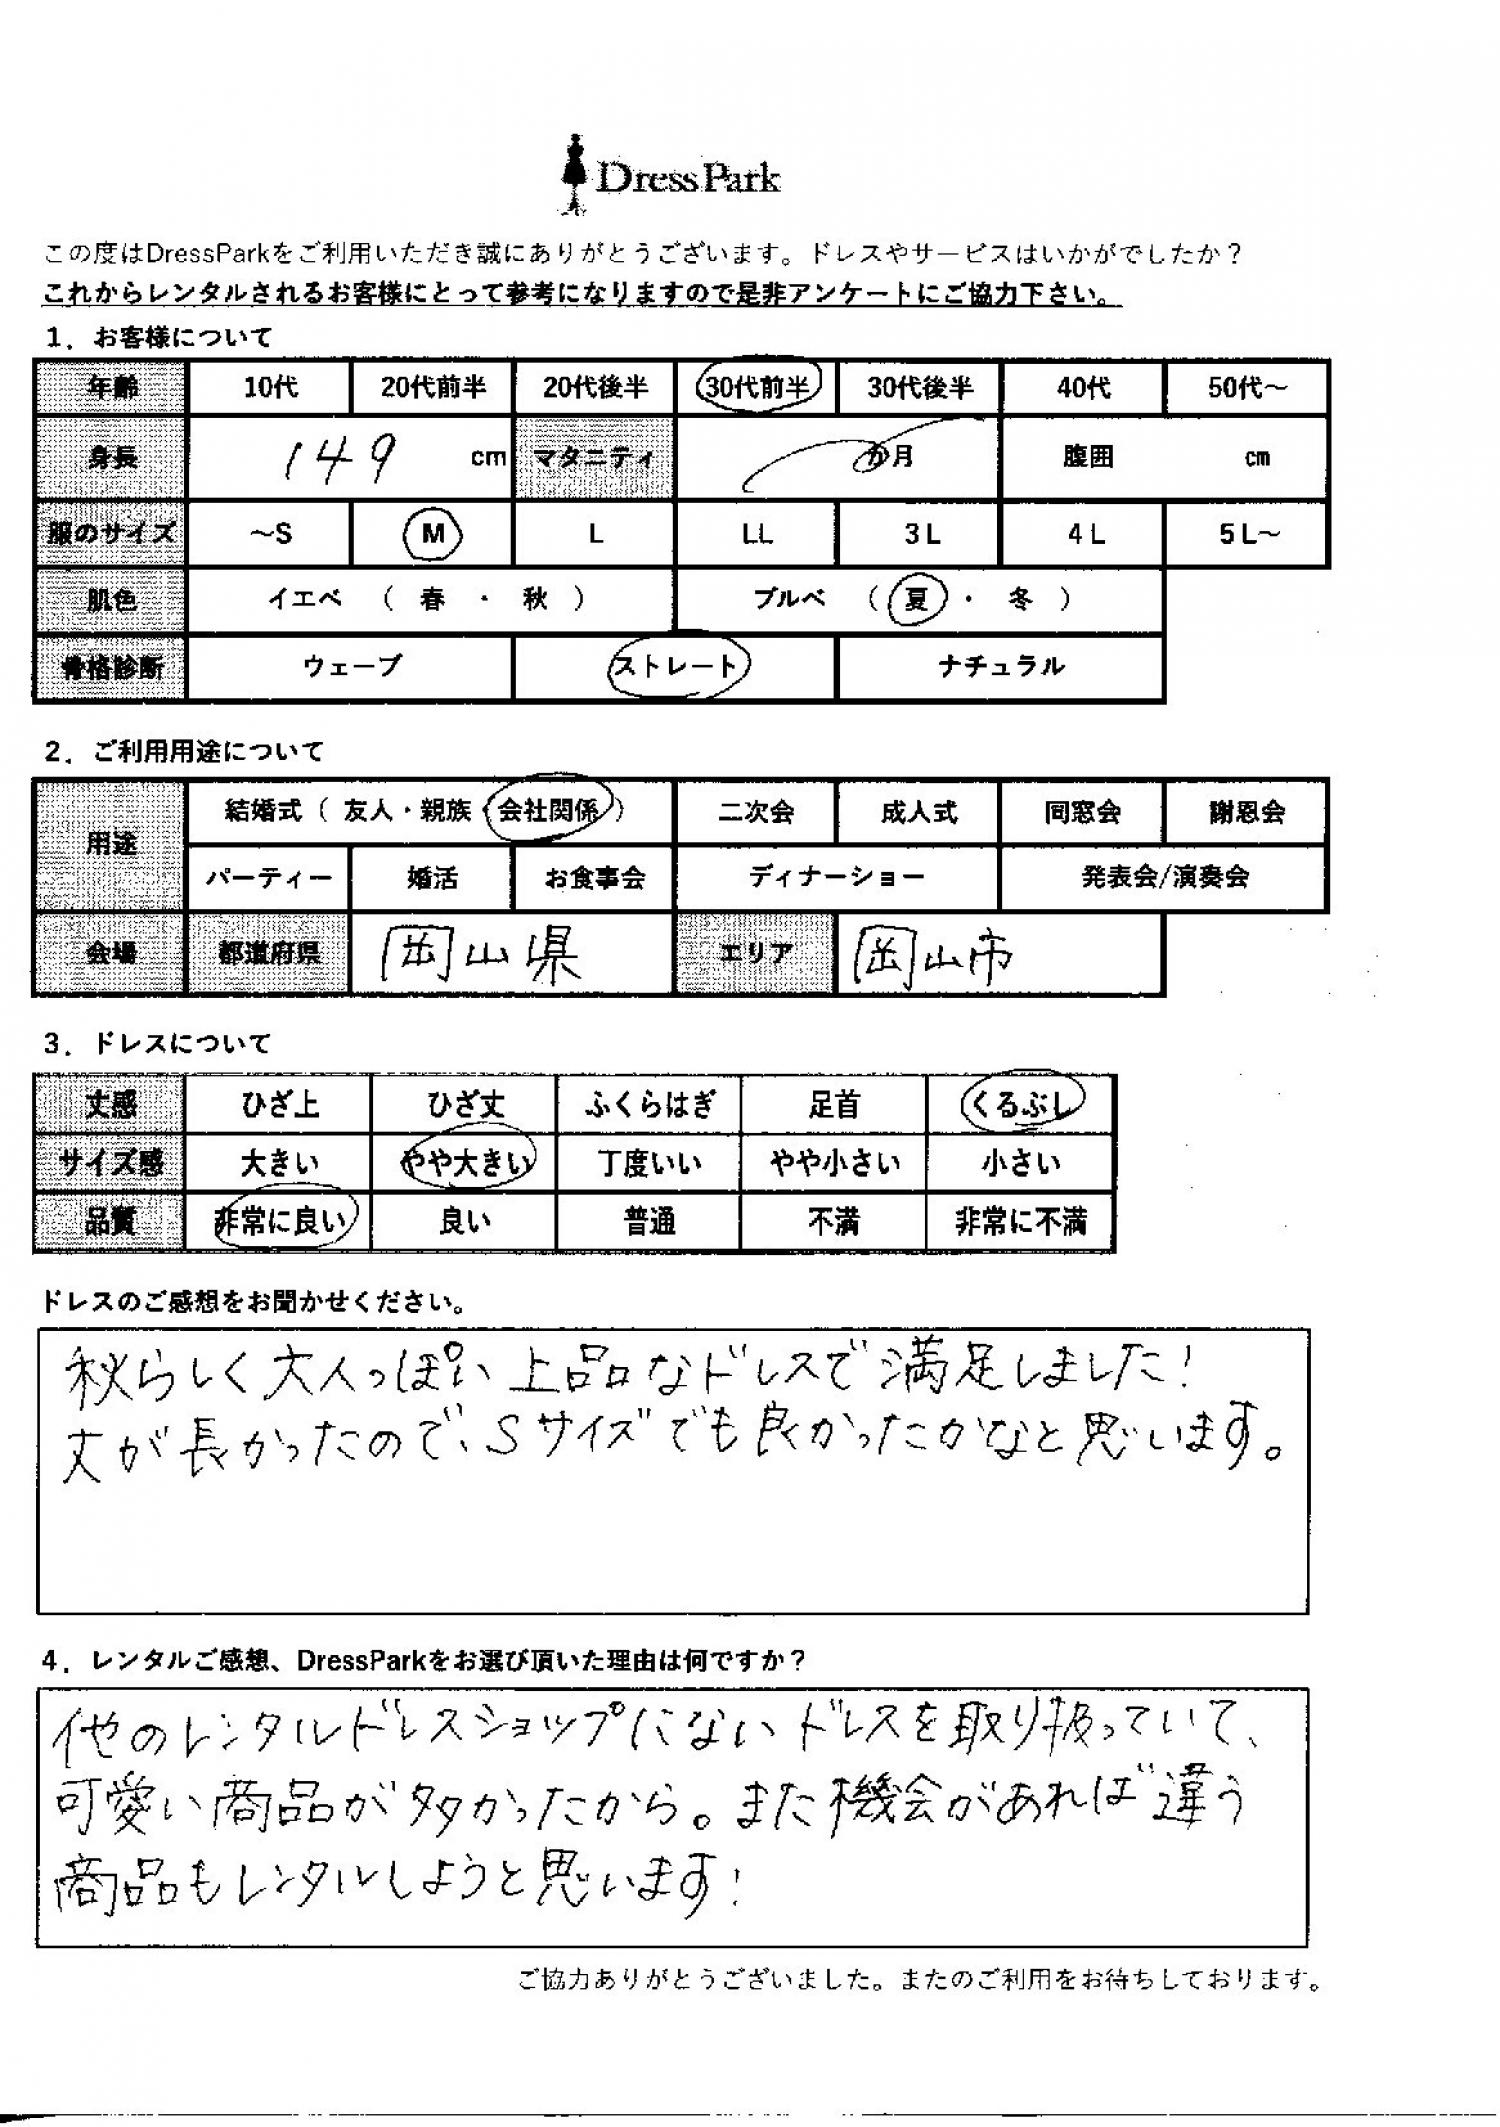 DressPark
この度はDressParkをご利用いただき誠にありがとうございます。ドレスやサービスはいかがでしたか？
これからレンタルされるお客様にとって参考になりますので是非アンケートにご協力下さい。
1．お客様について
年齢 10代 20代前半 20代後半 30代前半 30代後半 40代 50代～
身長 149 cm マタニティ か月 腹囲 cm
服のサイズ ～S M L LL 3L 4L 5L～
肌色 イエベ （ 春 ・ 秋 ） ブルベ （ 夏 ・ 冬 ）
骨格診断 ウェーブ ストレート ナチュラル
2．ご利用用途について
用途 結婚式（ 友人・親族・会社関係 ） 二次会 成人式 同窓会 謝恩会
パーティー 婚活 お食事会 ディナーショー 発表会/演奏会
会場 都道府県 岡山県 エリア 岡山市
3．ドレスについて
丈感 ひざ上 ひざ丈 ふくらはぎ 足首 くるぶし
サイズ感 大きい やや大きい 丁度いい やや小さい 小さい
品質 非常に良い 良い 普通 不満 非常に不満
ドレスのご感想をお聞かせください。
秋らしく大人っぽい上品なドレスで満足しました！
丈が長かったので、Sサイズでも良かったかなと思います。
4．レンタルご感想、DressParkをお選び頂いた理由は何ですか？
他のレンタルドレスショップにないドレスを取り扱っていて、
可愛い商品が多かったから。また機会があれば違う
商品もレンタルしようと思います！
ご協力ありがとうございました。またのご利用をお待ちしております。